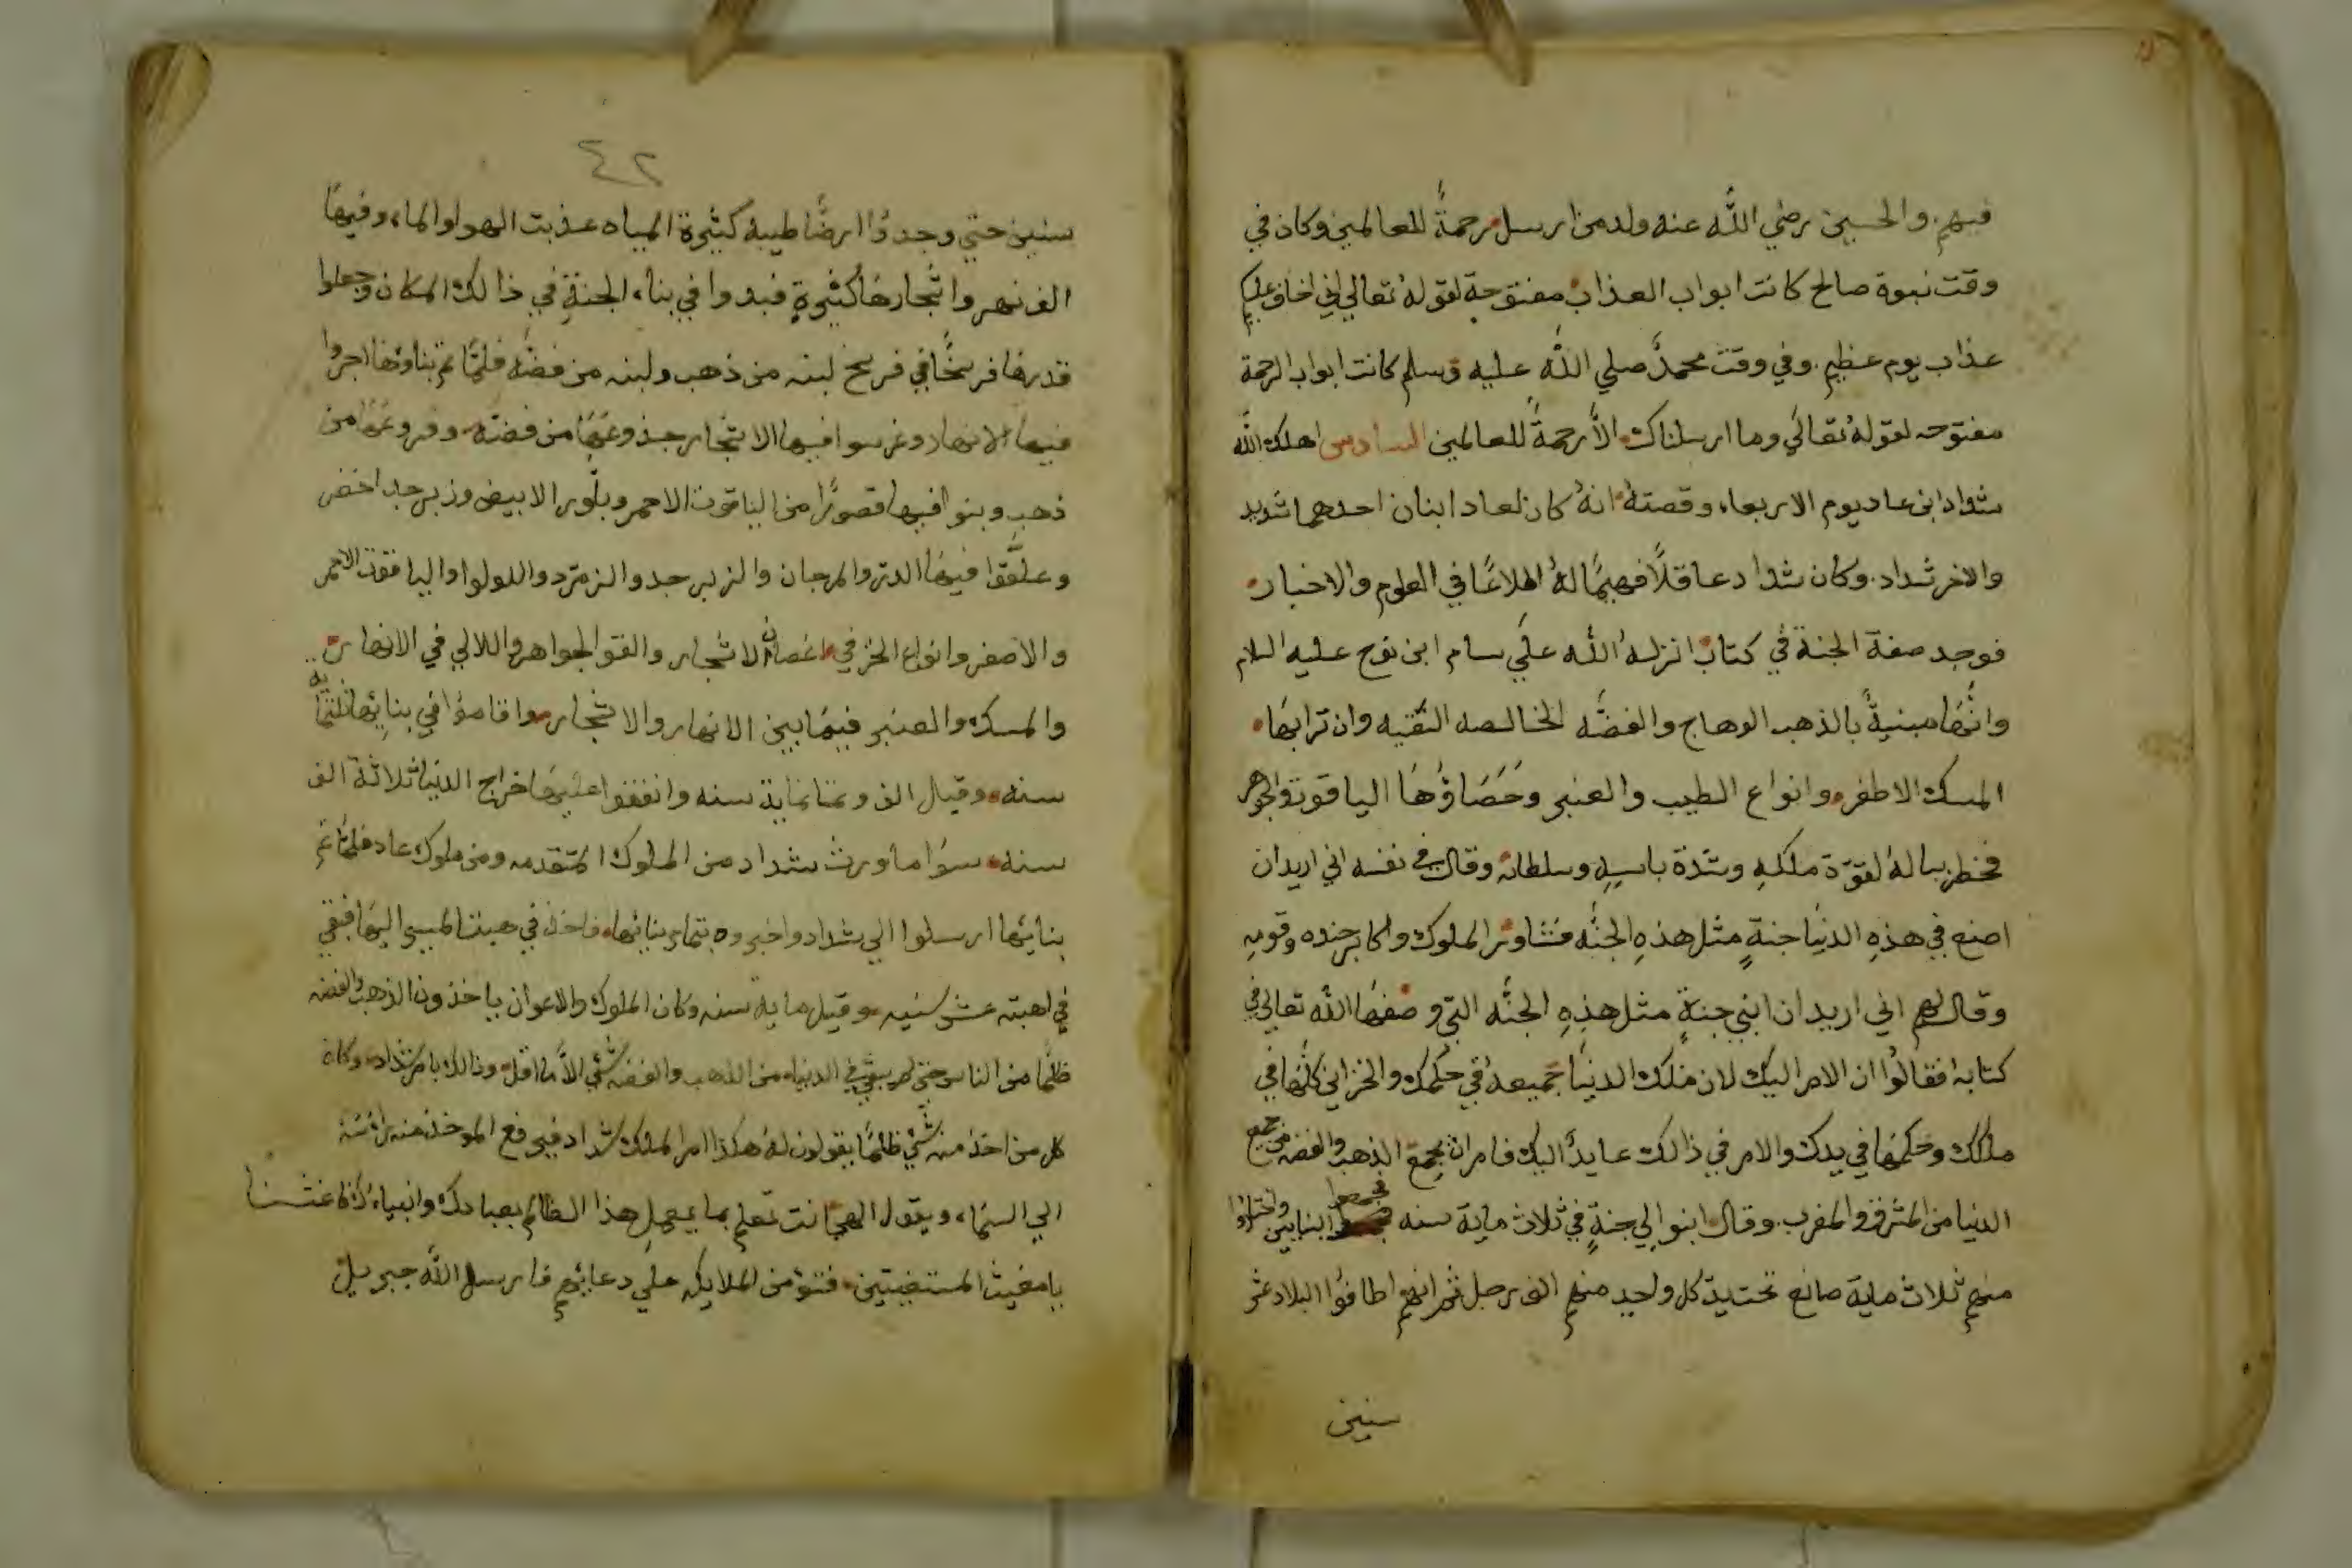 فيهم. والحسين رضي الله عنه ولد من ارسل رحمةً للعالمين وكان في
وقت نبوة صالح كانت ابواب العذاب مفتوحة لقوله تعالي اني اخاف عليكم
عذاب يوم عظيم. وفي وقت محمد صلي الله عليه وسلم كانت ابواب الرحمة
مفتوحه لقوله تعالي وما ارسلناك الا رحمةً للعالمين السادس اهلك الله
شداد ابن عاد يوم الاربعاء وقصته انه كان لعاد ابنان احدهما شديد
والاخر شداد. وكان شداد عاقلاً فهيمًا له اطلاعًا في العلوم والاخبار
فوجد صفة الجنة في كتاب انزله الله علي سام ابن نوح عليه السلام
وانها مبنيةً بالذهب الوهاج والفضه الخالصه النقيه وان ترابها
المسك الاظفر وانواع الطيب والعنبر وحصاؤها الياقوت والجوهر
فخطر بباله لقوّة ملكهِ وشدّة باسهِ وسلطانه وقال في نفسه اني اريد ان
اصنع في هذهِ الدنيا جنةٍ مثل هذهِ الجنه فشاور الملوك واكابر جنده وقومهِ
وقال لهم اني اريد ان ابني جنةٍ مثل هذهِ الجنه التي وصفها الله تعالي في
كتابه افقالوا ان الامر اليك لان ملك الدنيا جميعه في حكمك والخزاين كلها في
ملكك وحكمها في يدك والامر في ذالك عايدًا اليك فامر ان يجمع الذهب والفضه من جميع
الدنيا من المشرق والمغرب. وقال ابنوا لي جنةٍ في ثلاث ماية سنه فجمعوا البنايين واختاروا
منهم ثلاث ماية صانع تحت يد كل واحد منهم الف رجل ثم انهم اطافوا البلاد عشر
سنين
٤٢
سنين حتي وجدوا ارضًا طيبه كثيرة المياه عذبت الهوا والماء وفيها
الف نهر واشجارها كثيرةٍ فبدوا في بناء الجنةِ في ذالك المكان وجعلوا
قدرها فرسخًا في فرسخ لبنه من ذهب ولبنه من فضه فلما تم بناؤها اجروا
فيها الانهار وغرسوا فيها الاشجار جذوعها من فضة وفروعها من
ذهب وبنوا فيها قصورًا من الياقوت الاحمر وبلّور الابيض وزبرجد اخضر
وعلّقوا فيها الدر والمرجان والزبرجد والزمرّد واللولوا والياقوت الاحمر
والاصفر وانواع الخز في اغصان الاشجار والقو الجواهر واللالي في الانهار
والمسك والعنبر فيما بين الانهار والاشجار واقاموا في بنايها ثلثماية
سنه وقيل الف وثمانماية سنه وانفقوا عليها خراج الدنيا ثلاثة الف
سنه سوا ما ورث شداد من الملوك المتقدمه ومن ملوك عاد فلما تم
بنائها ارسلوا الي شداد واخبروه بتمام بنائها فاخذ في هيئت المسير اليها فبقي
في اهبته عشر سنين وقيل ماية سنه وكان الملوك والاعوان ياخذون الذهب والفضه
ظلمًا من الناس حتي لم يبقي في الدنيا من الذهب والفضه شي الا ما اقل وذالك بامر شداد وكان
كل من اخذ منه شي ظلمًا يقولون له هكذا امر الملك شداد فيرفع الموخذ منه راسه
الي السماء ويقول الهي انت تعلم بما يعمل هذا الظالم بعبادك وانبياءك فاغثنا
يا مغيث المستغيثين فتؤمن الملايكه علي دعائهم فارسل الله جبريل